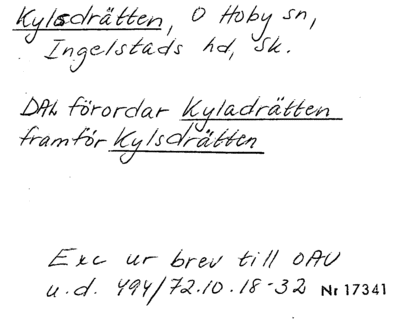 Kylsdrätten, Ö Hoby sn,
Ingelstads hd, Sk.
DAL förordar Kyladrätten
framför Kylsdrätten
Exc ur brev till OAU
u.d. 494/72.10.18-32 Nr 17341